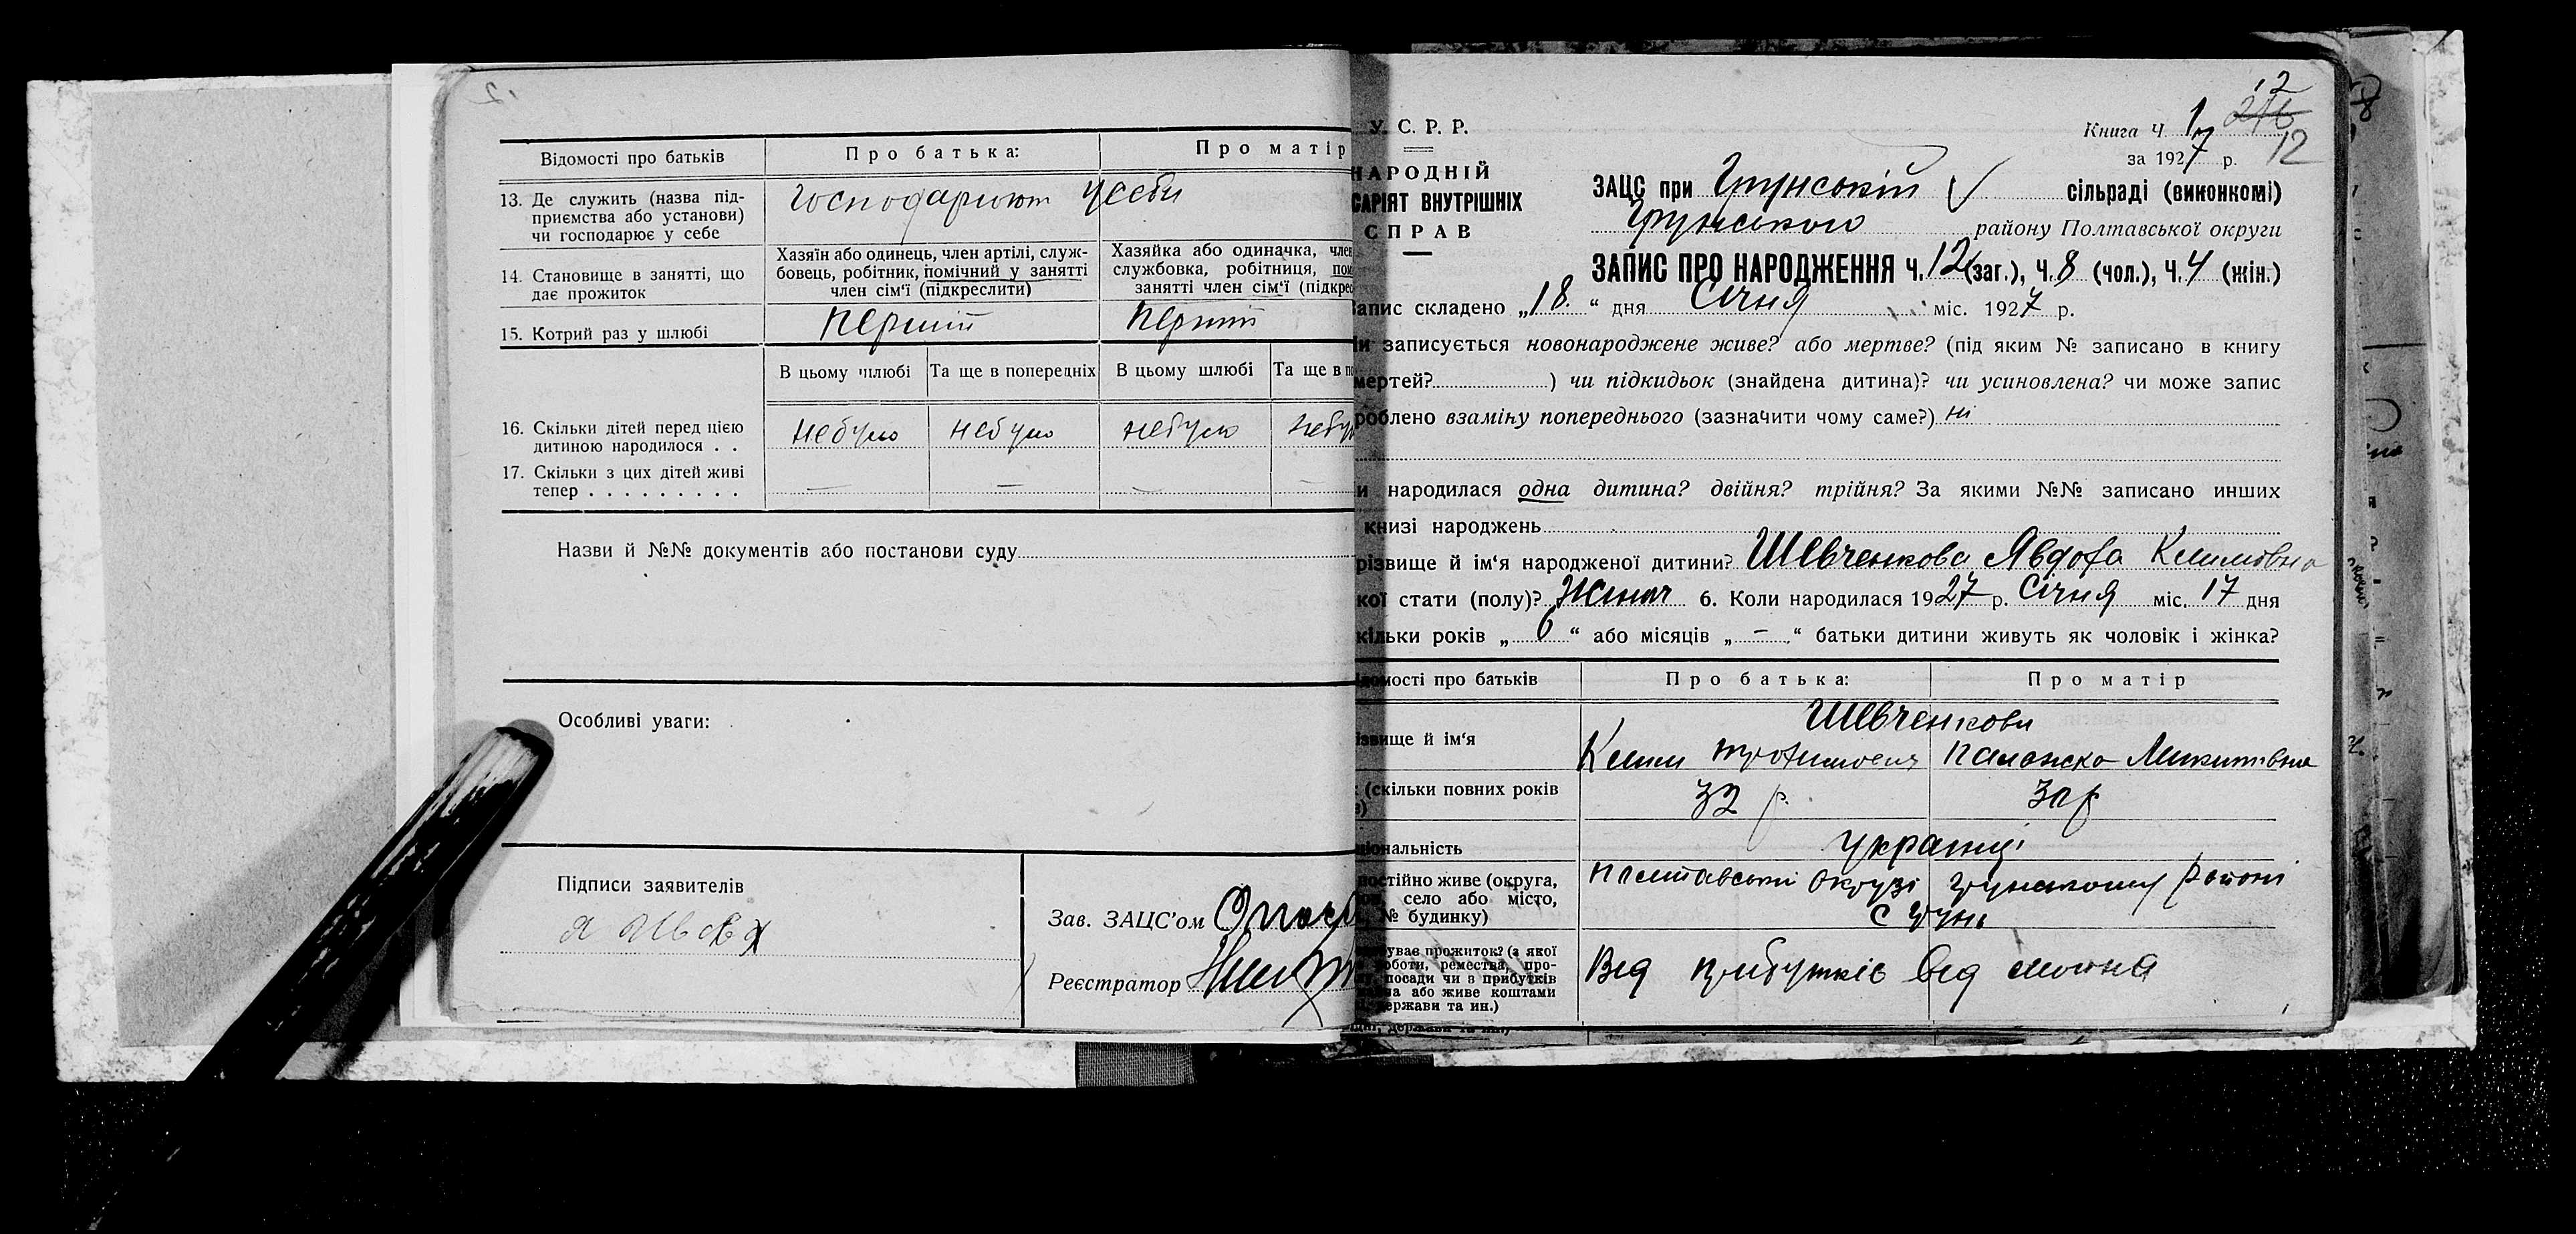 Відомості про батьків
Про батька:
Про матір
13. Де служить (назва під-
приємства або установи)
чи господарює у себе
господарюют усебя
14. Становище в занятті, що
дає прожиток
Хазяїн або одинець, член артілі, служ-
бовець, робітник, помічний у занятті
член сім'ї (підкреслити)
Хазяйка або одиначка, член
службовка, робітниця, пом
занятті член сім'ї (підкрес
15. Котрий раз у шлюбі
перший
перший
В цьому шлюбі
Та ще в попередніх
В цьому шлюбі
Та ще в по
16. Скільки дітей перед цією
дитиною народилося . .
небуло
небуло
небуло
небул
17. Скільки з цих дітей живі
тепер . . . . . . . . .
— — — —
Назви й №№ документів або постанови суду
Особливі уваги:
Підписи заявителів
Зав. ЗАЦС'ом
Реєстратор
12
Книга Ч 1
12
за 1927 р.
У. С. Р. Р.
НАРОДНІЙ
САРІЯТ ВНУТРІШНІХ
СПРАВ
ЗАЦС при Грунській сільраді (виконкомі)
Грунського району Полтавської округи
ЗАПИС ПРО НАРОДЖЕННЯ Ч. 12 (заг.), Ч. 8 (чол.), Ч. 4 (жін.)
апис складено „18“ дня Січня міс. 1927 р.
и записується новонароджене живе? або мертве? (під яким № записано в книгу
мертей? ) чи підкидьок (знайдена дитина)? чи усиновлена? чи може запис
роблено взаміну попереднього (зазначити чому саме?) ні
и народилася одна дитина? двійня? трійня? За якими №№ записано инших
книзі народжень
різвище й ім'я народженої дитини? Шевченкова Явдоха Климовна
кої стати (полу)? Жіноч 6. Коли народилася 1927 р. Січня міс. 17 дня
кільки років „6“ або місяців „–“ батьки дитини живуть як чоловік і жінка?
домості про батьків
Про батька:
Про матір
Шевченкови
ізвище й ім'я
Клим Трохимович
Палажка Микитівна
(скільки повних років
32 р.
30 р
ціональність
українці
постійно живе (округа,
село або місто,
№ будинку)
Полтавській окрузі грунському районі
с Грунь
ває прожиток? (з якої
оботи, ремества, про-
посади чи в прибутків
на або живе коштами
держави та ин.)
Вед прибутків вед